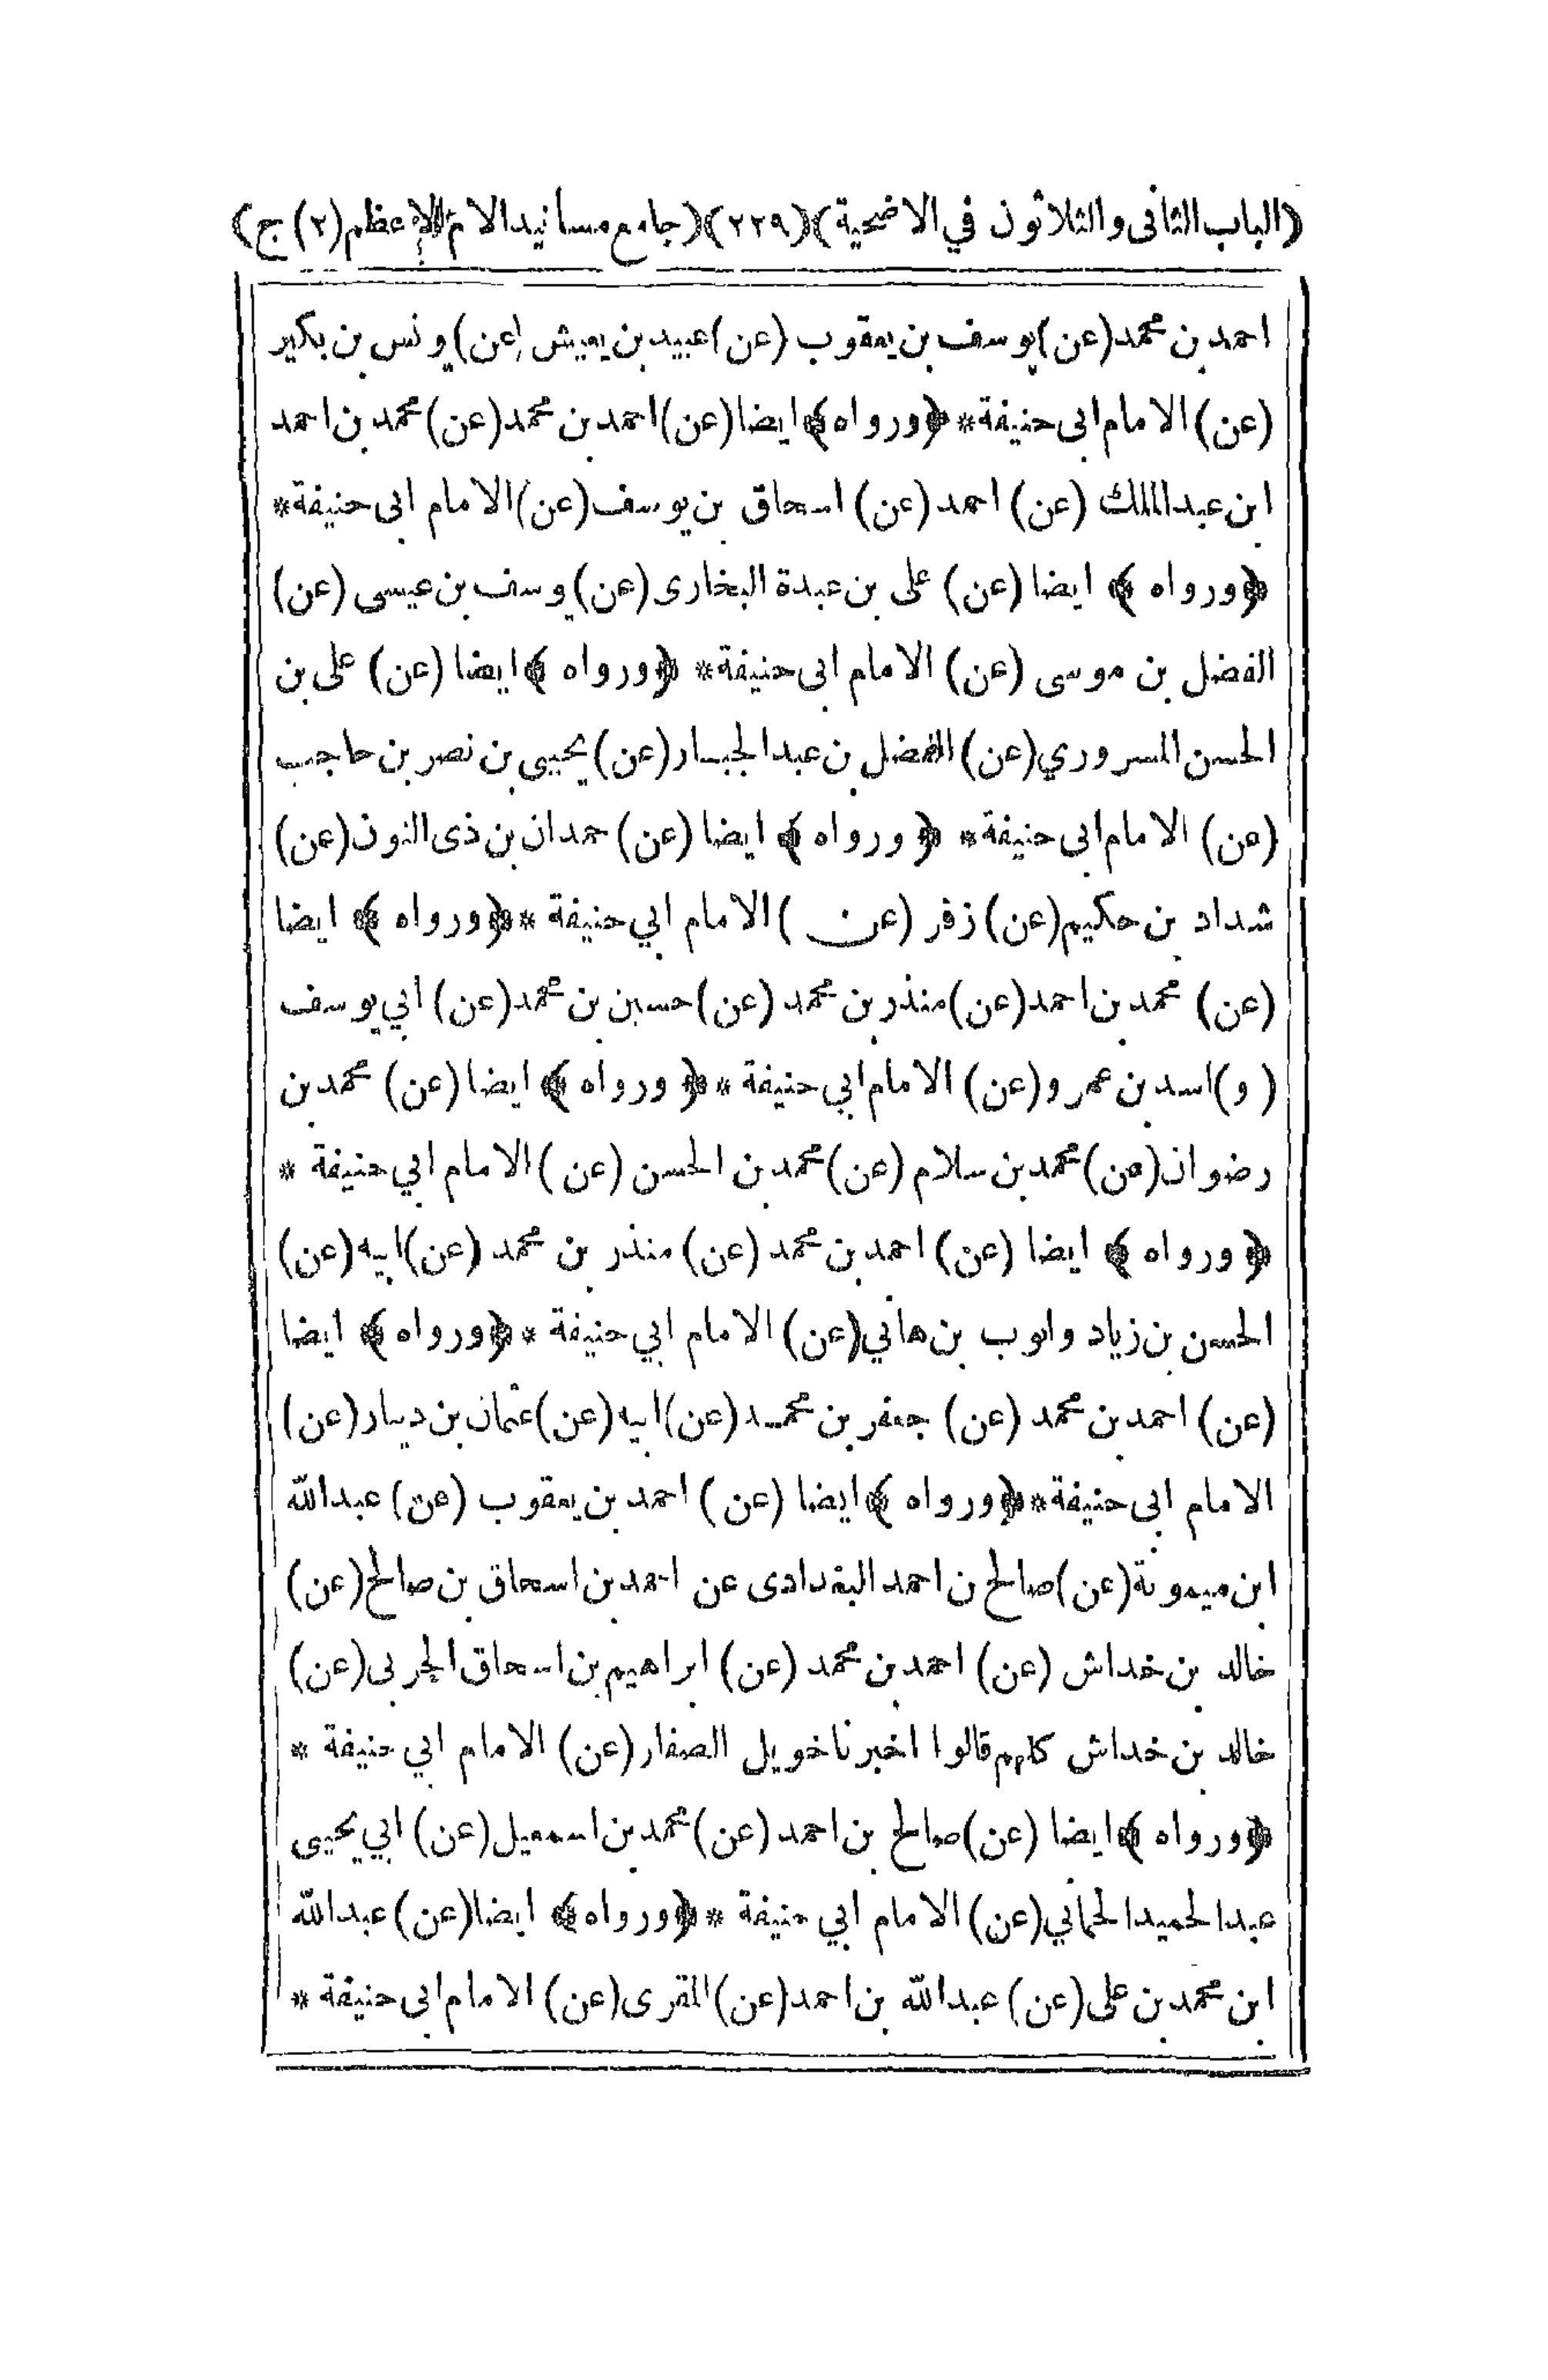 (الباب الثانى والثلاثون في الاضحية)(٢٢٩)(جامع مسانيد الامام الاعظم(٢)ج)
احمد بن محمد(عن)يوسف بن يعقوب (عن)عبيد بن يعيش (عن)يونس بن بكير
(عن)الامام ابى حنيفة* ﴿ورواه﴾ايضا(عن)احمد بن محمد(عن)محمد بن احمد
ابن عبدالملك (عن) احمد (عن) اسحاق بن يوسف(عن)الامام ابى حنيفة*
﴿ورواه ﴾ ايضا (عن) على بن عبدة البخارى (عن)يوسف بن عيسى (عن)
الفضل بن موسى (عن) الامام ابى حنيفة* ﴿ورواه ﴾ايضا (عن) على بن
الحسن المسروري(عن)الفضل بن عبدالجبار(عن)يحيى بن نصر بن حاجب
(عن) الامام ابى حنيفة* ﴿ ورواه ﴾ ايضا (عن) حمدان بن ذى النون(عن)
شداد بن حكيم(عن)زفر (عن )الامام ابي حنيفة *﴿ورواه ﴾ ايضا
(عن) محمد بن احمد(عن)منذر بن محمد (عن)حسين بن محمد(عن) ابي يوسف
( و)اسد بن عمرو(عن) الامام ابي حنيفة *﴿ ورواه ﴾ ايضا(عن) محمد بن
رضوان(عن)محمد بن سلام (عن)محمد بن الحسن (عن )الامام ابي حنيفة *
﴿ ورواه ﴾ ايضا (عن) احمد بن محمد (عن) منذر بن محمد (عن)ابيه(عن)
الحسن بن زياد وايوب بن هاني(عن) الامام ابي حنيفة *﴿ورواه ﴾ ايضا
(عن) احمد بن محمد (عن) جعفر بن محمد(عن)ابيه(عن)عثمان بن دينار(عن)
الامام ابى حنيفة*﴿ورواه ﴾ايضا (عن) احمد بن يعقوب (عن) عبدالله
ابن ميمونة(عن)صالح بن احمد البغدادى عن احمد بن اسحاق بن صالح(عن)
خالد بن خداش (عن) احمد بن محمد (عن) ابراهيم بن اسحاق الحربى(عن)
خالد بن خداش كلهم قالوا اخبرنا خويل الصفار(عن) الامام ابي حنيفة *
﴿ورواه ﴾ايضا (عن)صالح بن احمد (عن)محمد بن اسمعيل(عن) ابي يحيى
عبدالحميدالحماني(عن)الامام ابي حنيفة *﴿ورواه﴾ ايضا(عن)عبدالله
ابن محمد بن على(عن)عبدالله بن احمد(عن)المقرى(عن)الامام ابى حنيفة *